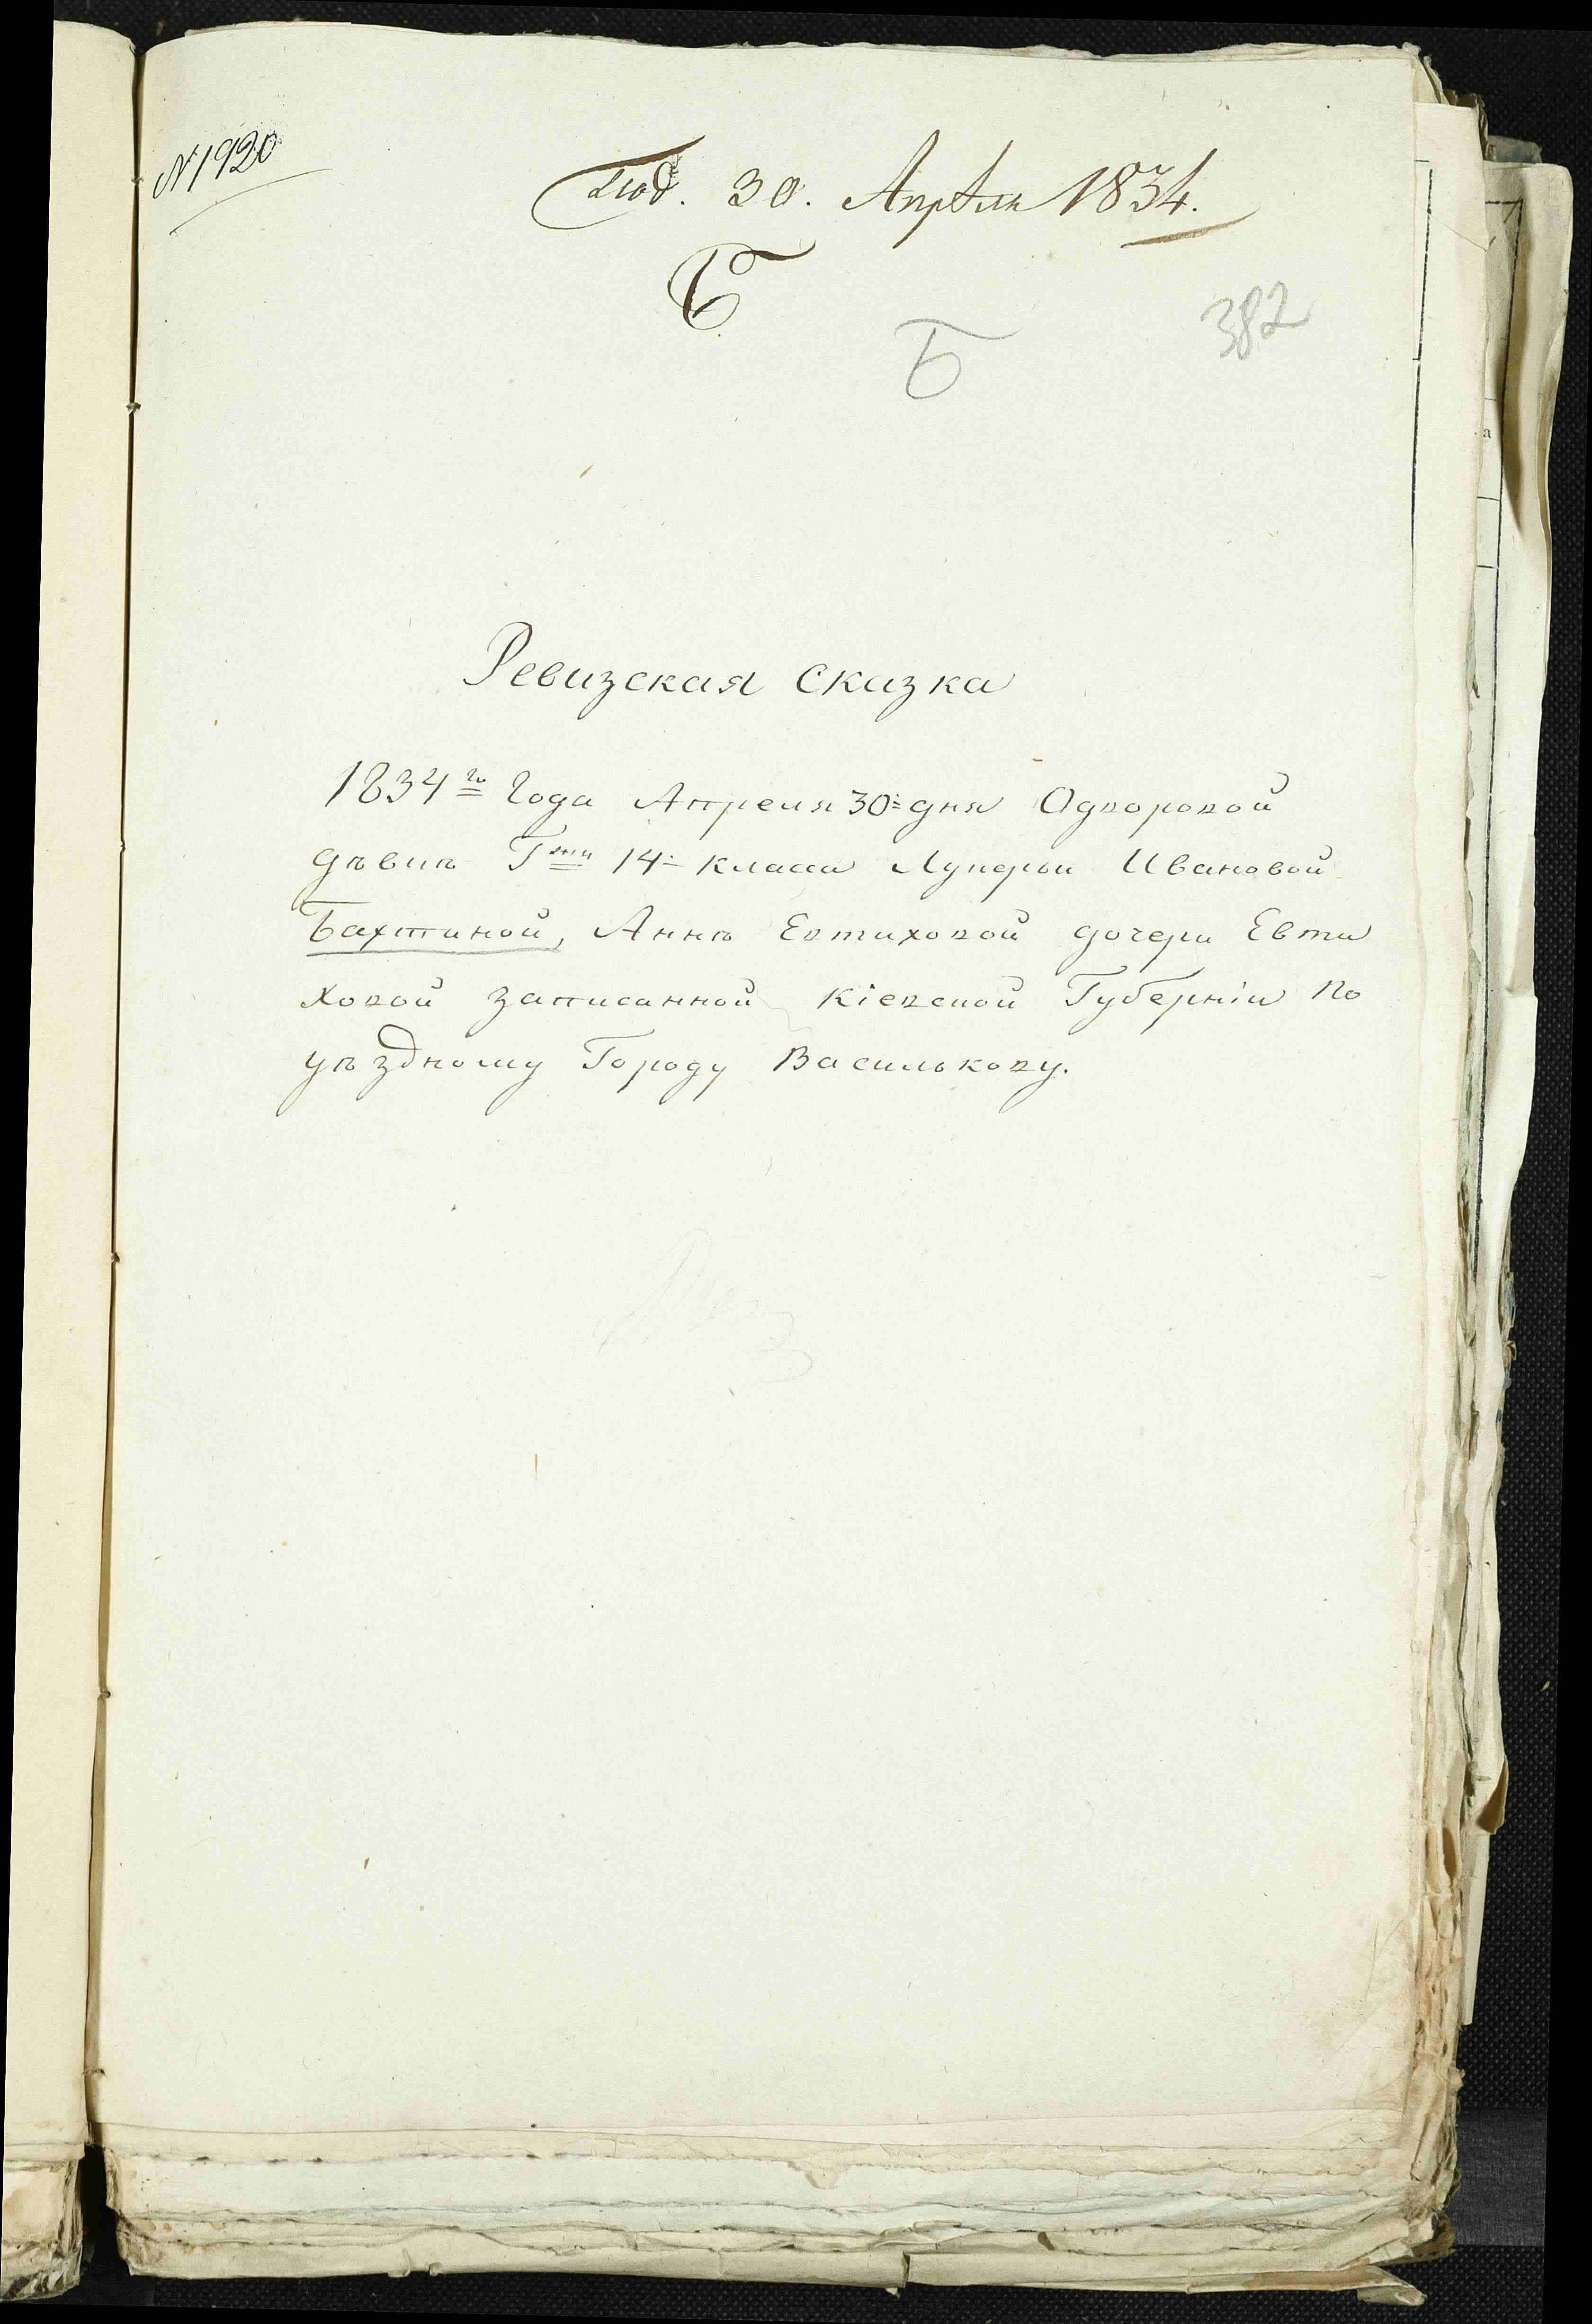 N 1920
Под. 30. Апрѣля 1834.
Б
Б
382
Ревизская сказка
1834го Года Апреля 30 дня О дворовой
дѣвкѣ Гжи 14 класса Лукерьи Ивановой
Бахтиной, Аннѣ Евтиховой дочери Евти
ховой записанной Кіевской Губерніи по
уѣздному Городу Василькову.